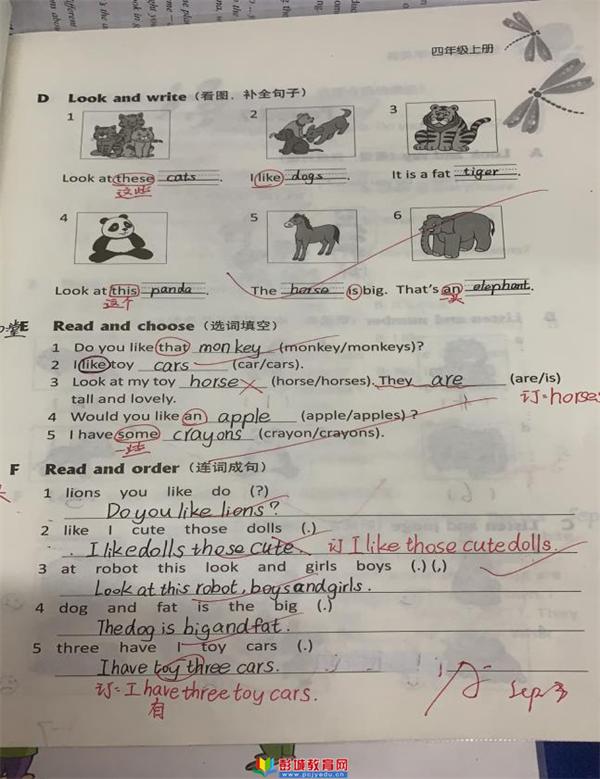 四年级上册
D Look and write (看图，补全句子)
1 2 3
Look at these cats. I like dogs. It is a fat tiger.
这些
4 5 6
Look at this panda. The horse is big. That's an elephant.
这个 一头
E Read and choose (选词填空)
1 Do you like that monkey (monkey/monkeys)?
2 I like toy cars (car/cars).
3 Look at my toy horse (horse/horses). They are (are/is)
tall and lovely. 订:horses
4 Would you like an apple (apple/apples)?
5 I have some crayons (crayon/crayons).
一些
F Read and order (连词成句)
1 lions you like do (?)
Do you like lions?
2 like I cute those dolls (.)
I like dolls those cute. 订 I like those cute dolls.
3 at robot this look and girls boys (.) (,)
Look at this robot, boys and girls.
4 dog and fat is the big (.)
The dog is big and fat.
5 three have I toy cars (.)
I have toy three cars.
订:I have three toy cars.
有
彭城教育网
www.pcjyedu.cn